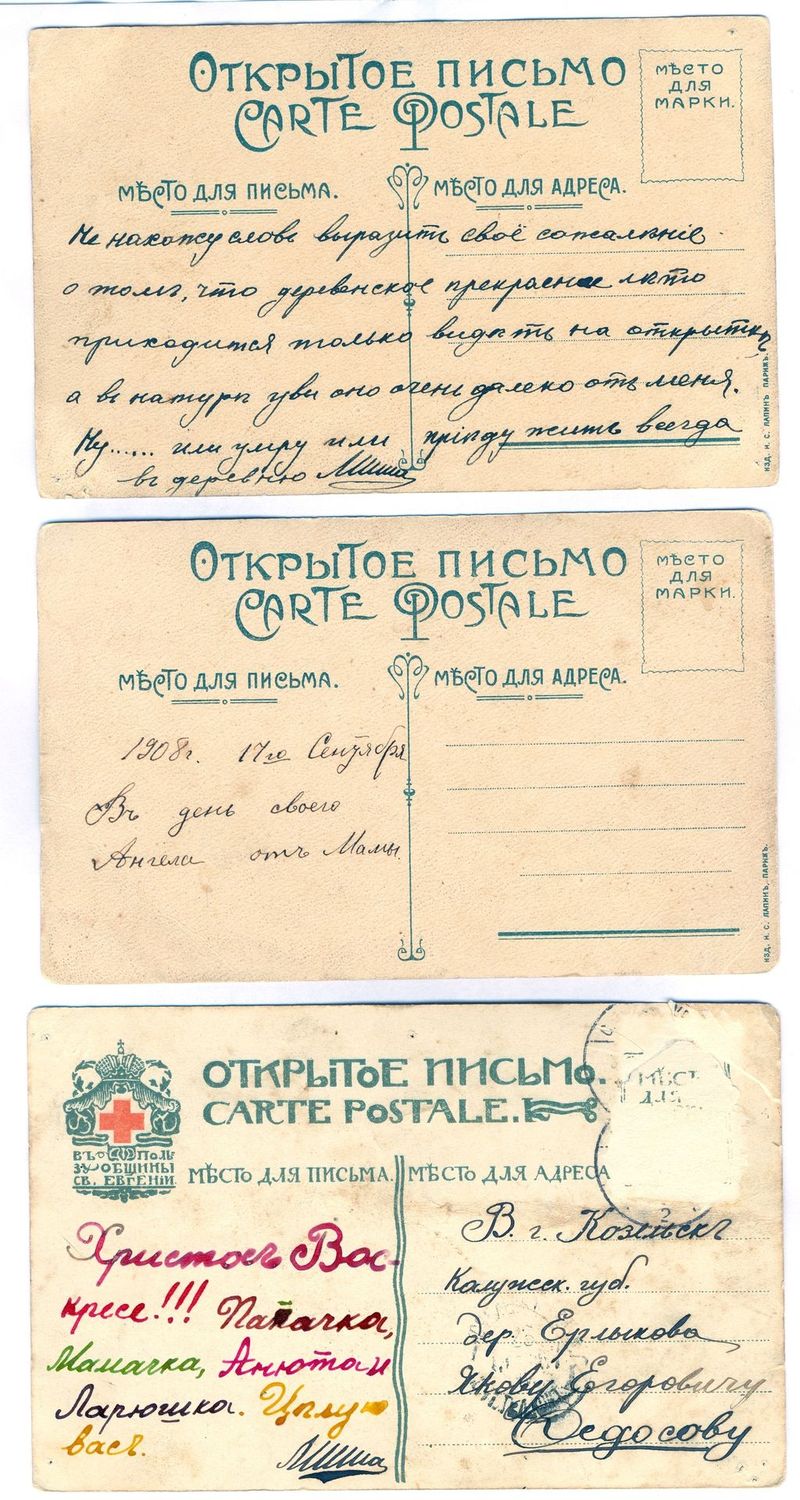 ОТКРЫТОЕ ПИСЬМО
CARTE POSTALE
МѢСТО
ДЛЯ
МАРКИ.
МѢСТО ДЛЯ ПИСЬМА.
МѢСТО ДЛЯ АДРЕСА.
Не нахожу словъ выразить своё сожалѣніе
о томъ, что деревенское прекрасное лѣто
приходится только видѣть на открыткѣ
а въ натурѣ увы оно очень далеко отъ меня.
Ну...... или умру или пріѣду жить всегда
въ деревню Миша
ИЗД. И. С. ЛАПИНЪ, ПАРИЖЪ.
ОТКРЫТОЕ ПИСЬМО
CARTE POSTALE
МѢСТО
ДЛЯ
МАРКИ.
МѢСТО ДЛЯ ПИСЬМА.
МѢСТО ДЛЯ АДРЕСА.
1908г. 17го Сентября
Въ день своего
Ангела отъ Мамы.
ИЗД. И. С. ЛАПИНЪ, ПАРИЖЪ.
ОТКРЫТОЕ ПИСЬМО.
CARTE POSTALE.
МѢСТ
ДЛЯ
ВЪ ПОЛЬ
ЗУ ОБЩИНЫ
СВ. ЕВГЕНІИ
МѢСТО ДЛЯ ПИСЬМА.
МѢСТО ДЛЯ АДРЕСА
Христосъ Вос-
кресе!!! Папачка,
Мамачка, Анюта и
Ларюшка. Цѣлую
васъ.
Миша
В. г. Козельскъ
Калужск. губ.
дер. Ерлыкова
Якову Егоровичу
Ѳедосову